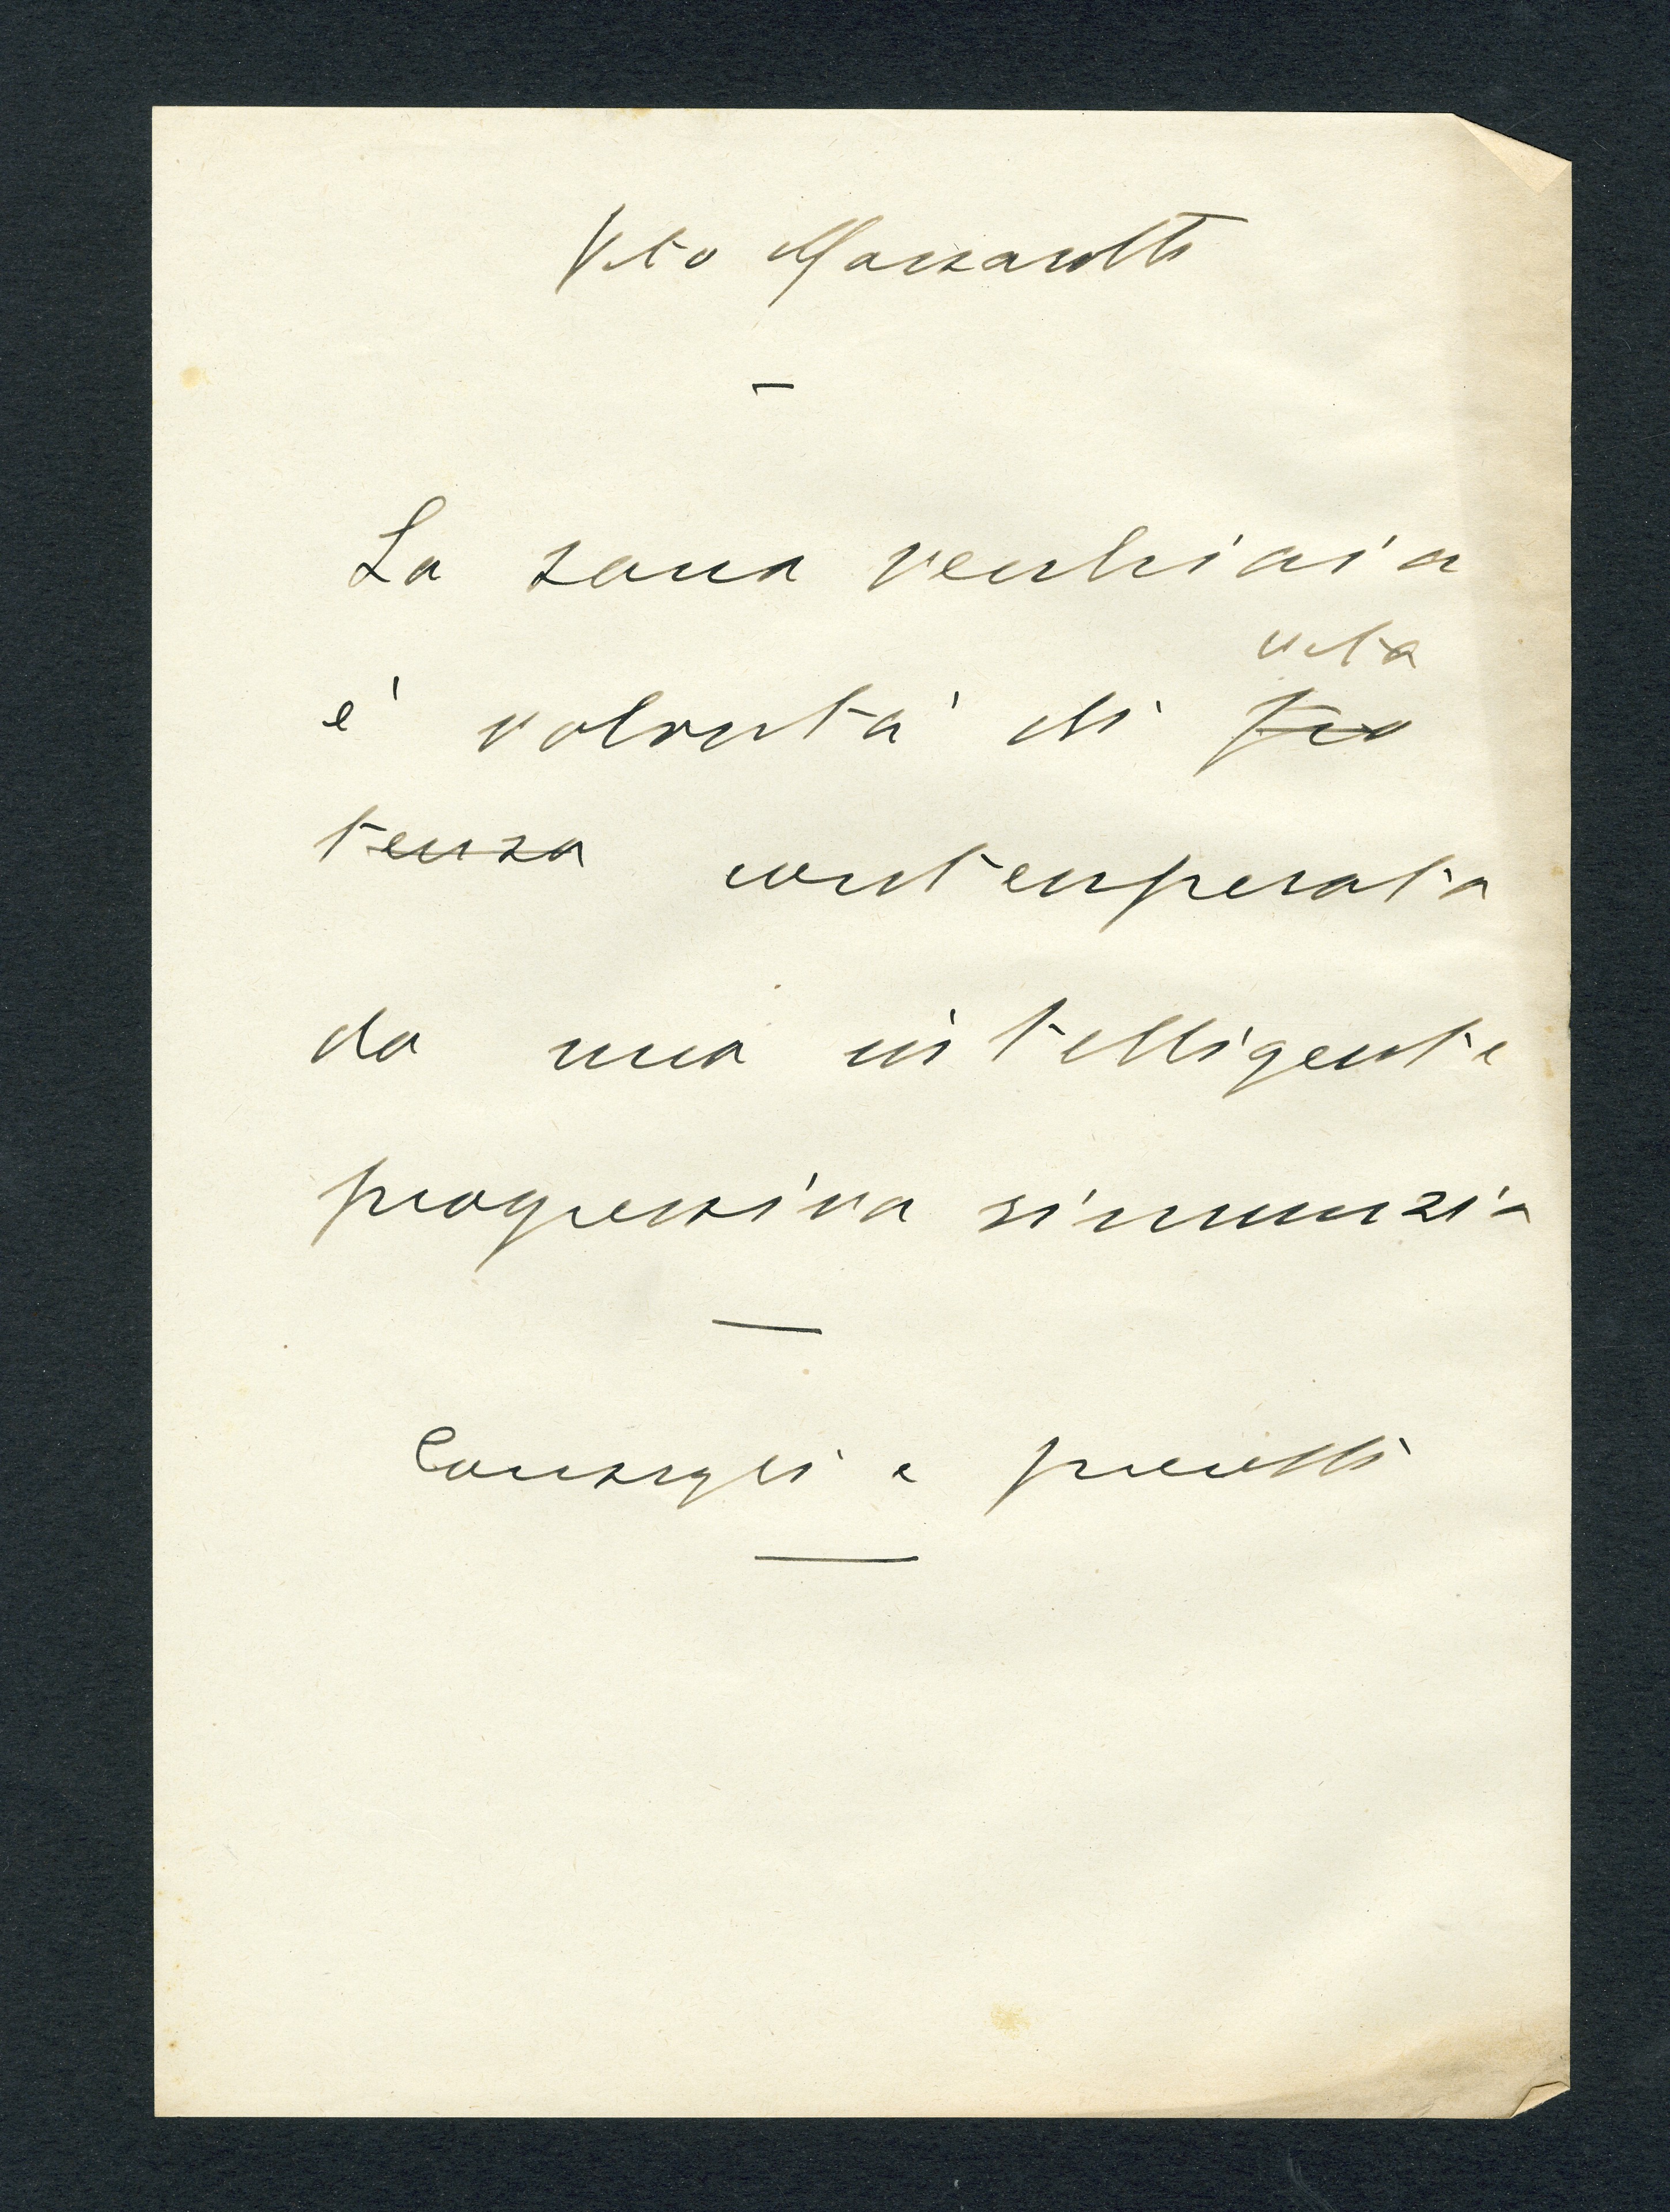 Vito Massarotti
La sana vecchiaia
vita
è volontà di po
tenza contemperata
da una intelligente
progressiva rinunzia
Consigli e precetti